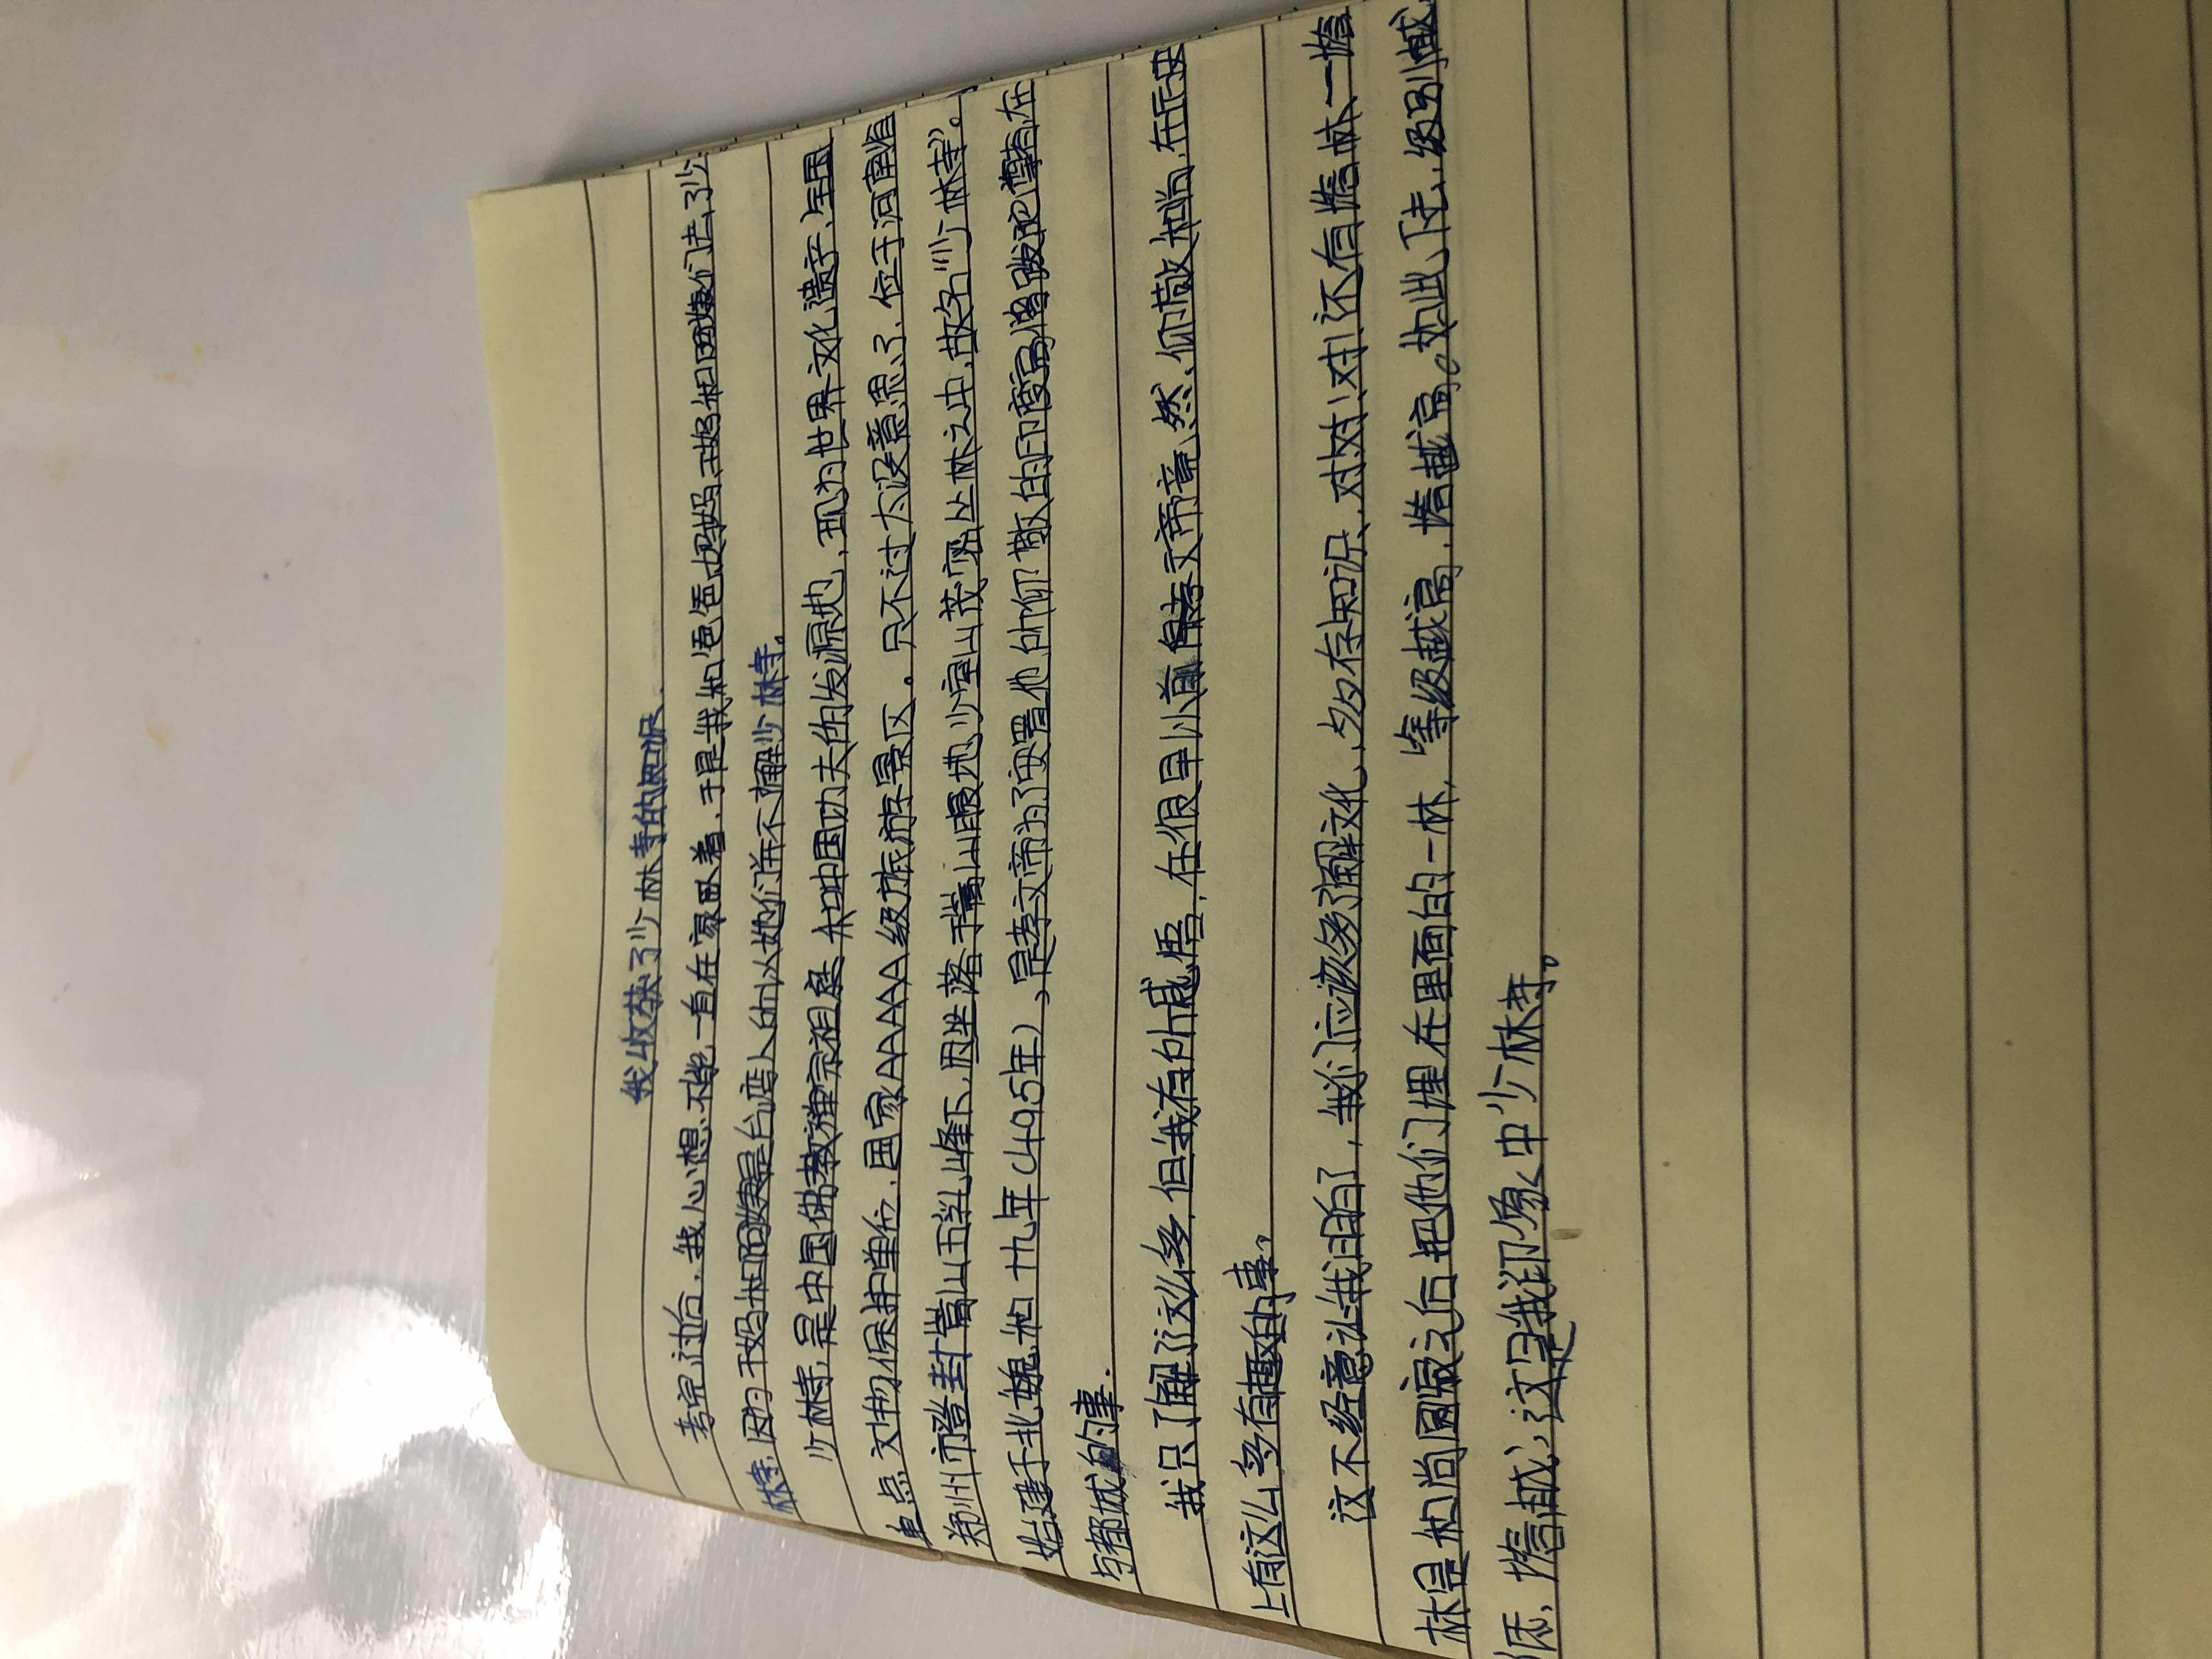 我收获了少林寺的知识
考完过后，我心想不能一直在家趴着，于是我和爸爸妈妈、干妈和因婕们去了少
林寺，因为干妈和因婕是台湾人所以她们并不了解少林寺。
少林寺，是中国佛教禅宗祖庭和中国功夫的发源地，现为世界文化遗产、全国
重点文物保护单位，国家AAAAA级旅游景区。只不过太没意思了，位于河南省
郑州市登封嵩山五乳峰下，因坐落于嵩山腹地少室山茂密丛林之中，故名“少林寺”。
始建于北魏太和十九年（495年），是孝文帝为了安置他所仰敬的印度高僧跋陀尊者在
与都城的事.
我只了解了这么多，但我有所感悟，在很早以前孝文帝竟然、仰敬和尚，在历史
上有这么多有趣的事。
这不经意让我明白了，我们应该多了解文化，多存知识、对对！对！还有塔林、一塔
林是和尚圆寂之后把他们埋在里面的一林，等级越高，塔越高。如此下去，级别越
低，塔越，这是我印象中少林寺。